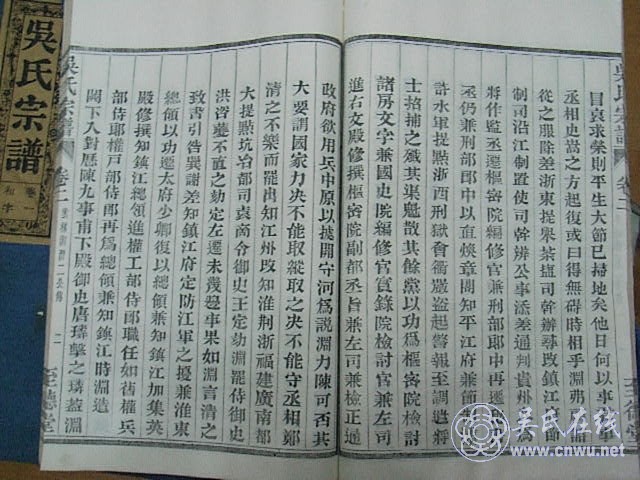 吳氏宗譜
目哀求榮則平生大節已掃地矣他日何以事君事
丞相史嵩之方起復或曰得無碍時相乎淵弗顧詔
從之服除差浙東提舉茶鹽司幹辦尋改鎮江節
制司沿江制置使司幹辦公事添差通判貴州為
將作監丞遷樞密院編修兼刑部郎中再遷
丞仍兼刑部郎中以直煥章閣知平江府兼
許水軍提點浙西刑獄會衢嚴盜起警報至調遣將
士招捕之殲其渠魁散其餘黨以功為樞密院檢
諸房文字兼國史院編修官實錄院檢討官兼左司
進右文殿修撰樞密院副都丞旨兼左司兼檢正適
政府欲用兵中原以據關守河為說淵力陳可否其
大要謂國家力決不能取縱取之決不能守丞相鄭
清之不樂而罷出知江州改知淮荊浙福建廣南都
大提點坑冶都司袁商令御史王定劾淵罷侍御史
洪咨夔不直之劾定左遷未幾邊事果如淵言清之
致書引咎巽謝差知鎮江府定防江軍之擾兼淮東
總領以功遷太府少卿復以總領兼知鎮江加集英
殿修撰知鎮江總領進權工部侍郎職任如舊權兵
部侍郎權戶部侍郎再為總領兼知鎮江時淵造
闕下入對歷陳九事甫下殿御史唐璘擊之璘蓋淵
吳氏宗譜 卷二 至德堂
吳氏宗譜
吴氏在线
www.cnwu.net